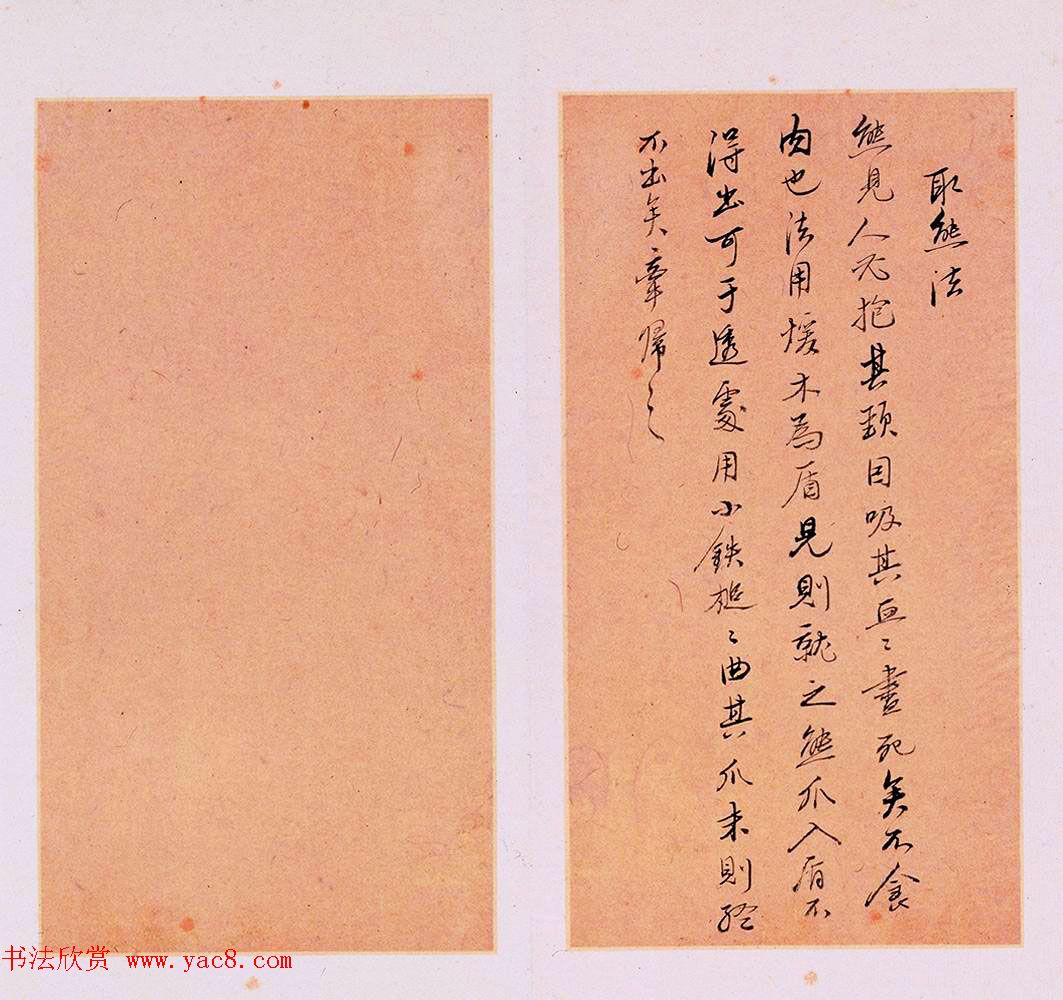 取熊法
熊見人必抱其頸因吸其血〻盡死矣不食
肉也法用煖木為盾見則就之熊爪入盾不
得出可于透處用小鉄槌〻曲其爪末則終
不出矣牽歸〻之
书法欣赏 www.yac8.com